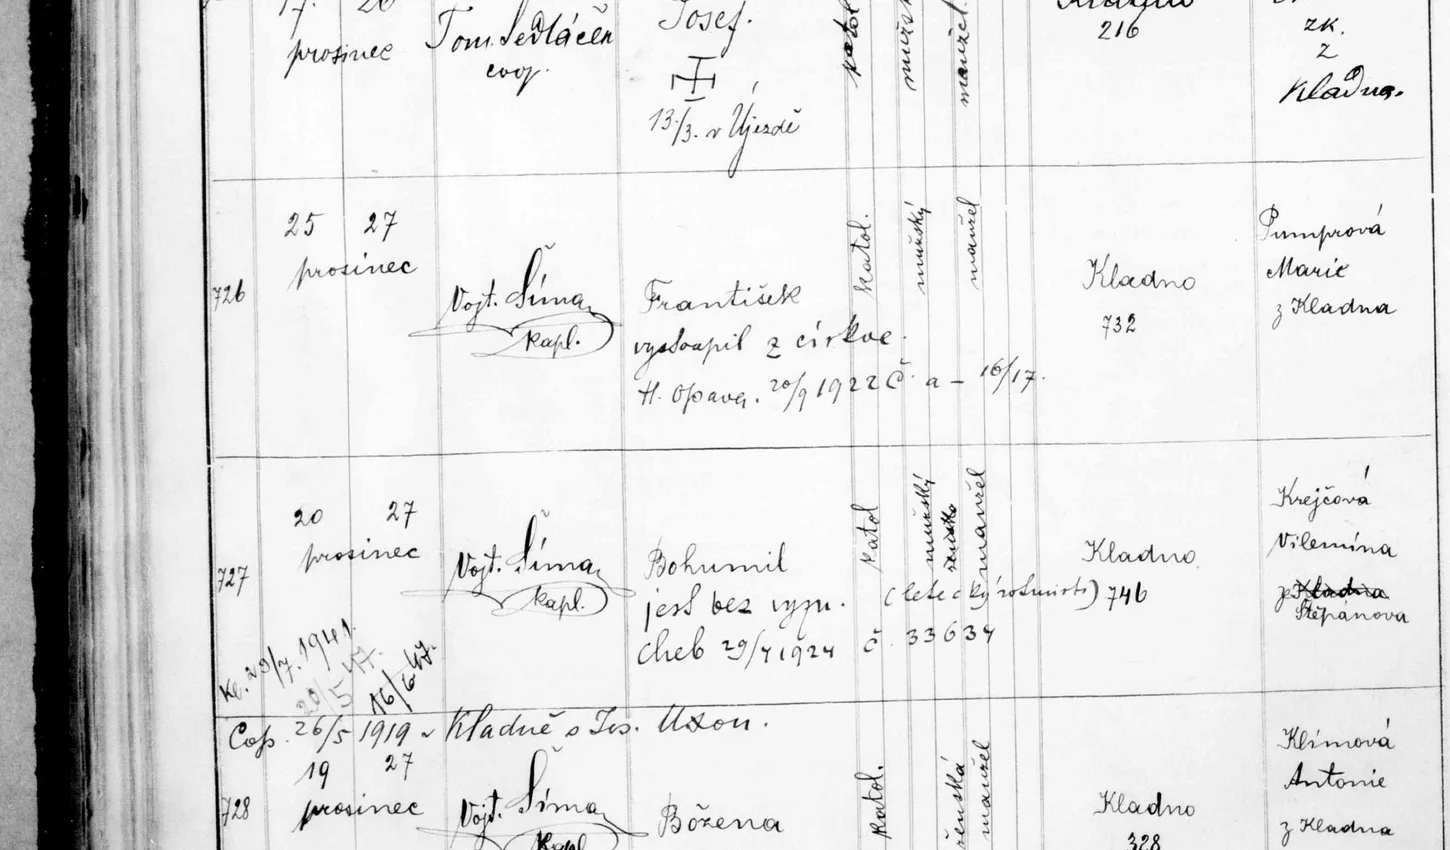 17. 20
prosinec
Tom. Sedláček
coop.
Josef.
13./3. v Újezdě
katol
manžel.
Kladno
216
zk.
z
Kladna.
726
25 27
prosinec
Vojt. Šíma
kapl.
František
vystoupil z církve.
H. Opava. 20/9 1922 č. a – 16/17.
katol.
mužský
manžel
Kladno
732
Pumprová
Marie
z Kladna
727
20 27
prosinec
Vojt. Šíma
kapl.
Bohumil
jest bez vyzn. (letecký rotmistr)
Cheb 29/4 1924 č. 33634
katol
mužský
manžel
Kladno
746
Krejčová
Vilemína
z Kladna
Štěpánova
Kl. 23/7. 1941.
20/5 47.
16/6 47.
Cop. 26/5 1919 v Kladně s Jos.
728
19 27
prosinec
Vojt. Šíma
kapl.
Božena
katol.
ženská
manžel
Kladno
328
Klímová
Antonie
z Kladna